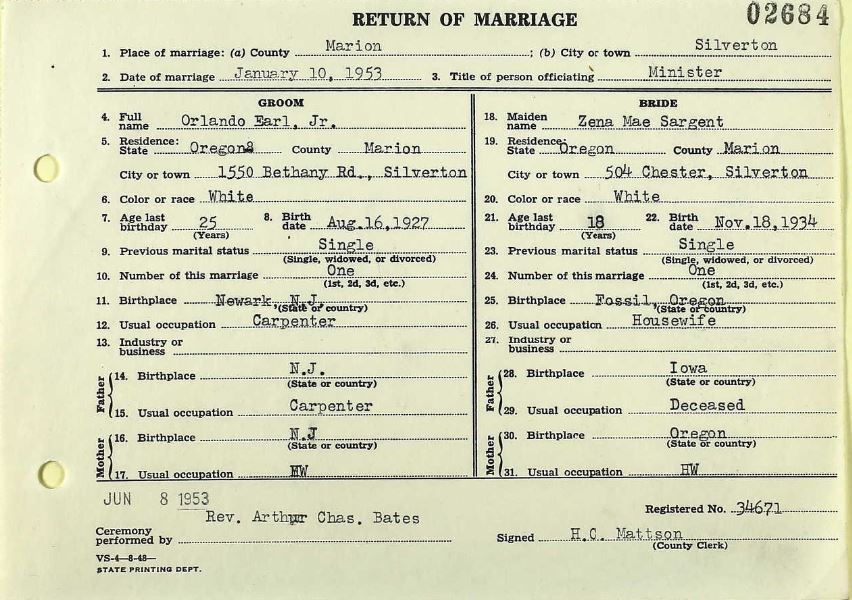 RETURN OF MARRIAGE 02684
1. Place of marriage: (a) County Marion ; (b) City or town Silverton
2. Date of marriage January 10, 1953 3. Title of person officiating Minister
GROOM
4. Full name Orlando Earl, Jr.
5. Residence: State Oregon County Marion
City or town 1550 Bethany Rd., Silverton
6. Color or race White
7. Age last birthday 25 (Years) 8. Birth date Aug.16,1927
9. Previous marital status Single
(Single, widowed, or divorced)
10. Number of this marriage One
(1st, 2d, 3d, etc.)
11. Birthplace Newark, N.J.
(State or country)
12. Usual occupation Carpenter
13. Industry or business
Father
14. Birthplace N.J.
(State or country)
15. Usual occupation Carpenter
Mother
16. Birthplace N.J
(State or country)
17. Usual occupation HW
BRIDE
18. Maiden name Zena Mae Sargent
19. Residence: State Oregon County Marion
City or town 504 Chester, Silverton
20. Color or race White
21. Age last birthday 18 (Years) 22. Birth date Nov.18,1934
23. Previous marital status Single
(Single, widowed, or divorced)
24. Number of this marriage One
(1st, 2d, 3d, etc.)
25. Birthplace Fossil, Oregon
(State or country)
26. Usual occupation Housewife
27. Industry or business
Father
28. Birthplace Iowa
(State or country)
29. Usual occupation Deceased
Mother
30. Birthplace Oregon
(State or country)
31. Usual occupation HW
JUN 8 1953
Ceremony performed by Rev. Arthur Chas. Bates
Registered No. 34671
Signed H.C. Mattson
(County Clerk)
VS-4—8-48—
STATE PRINTING DEPT.